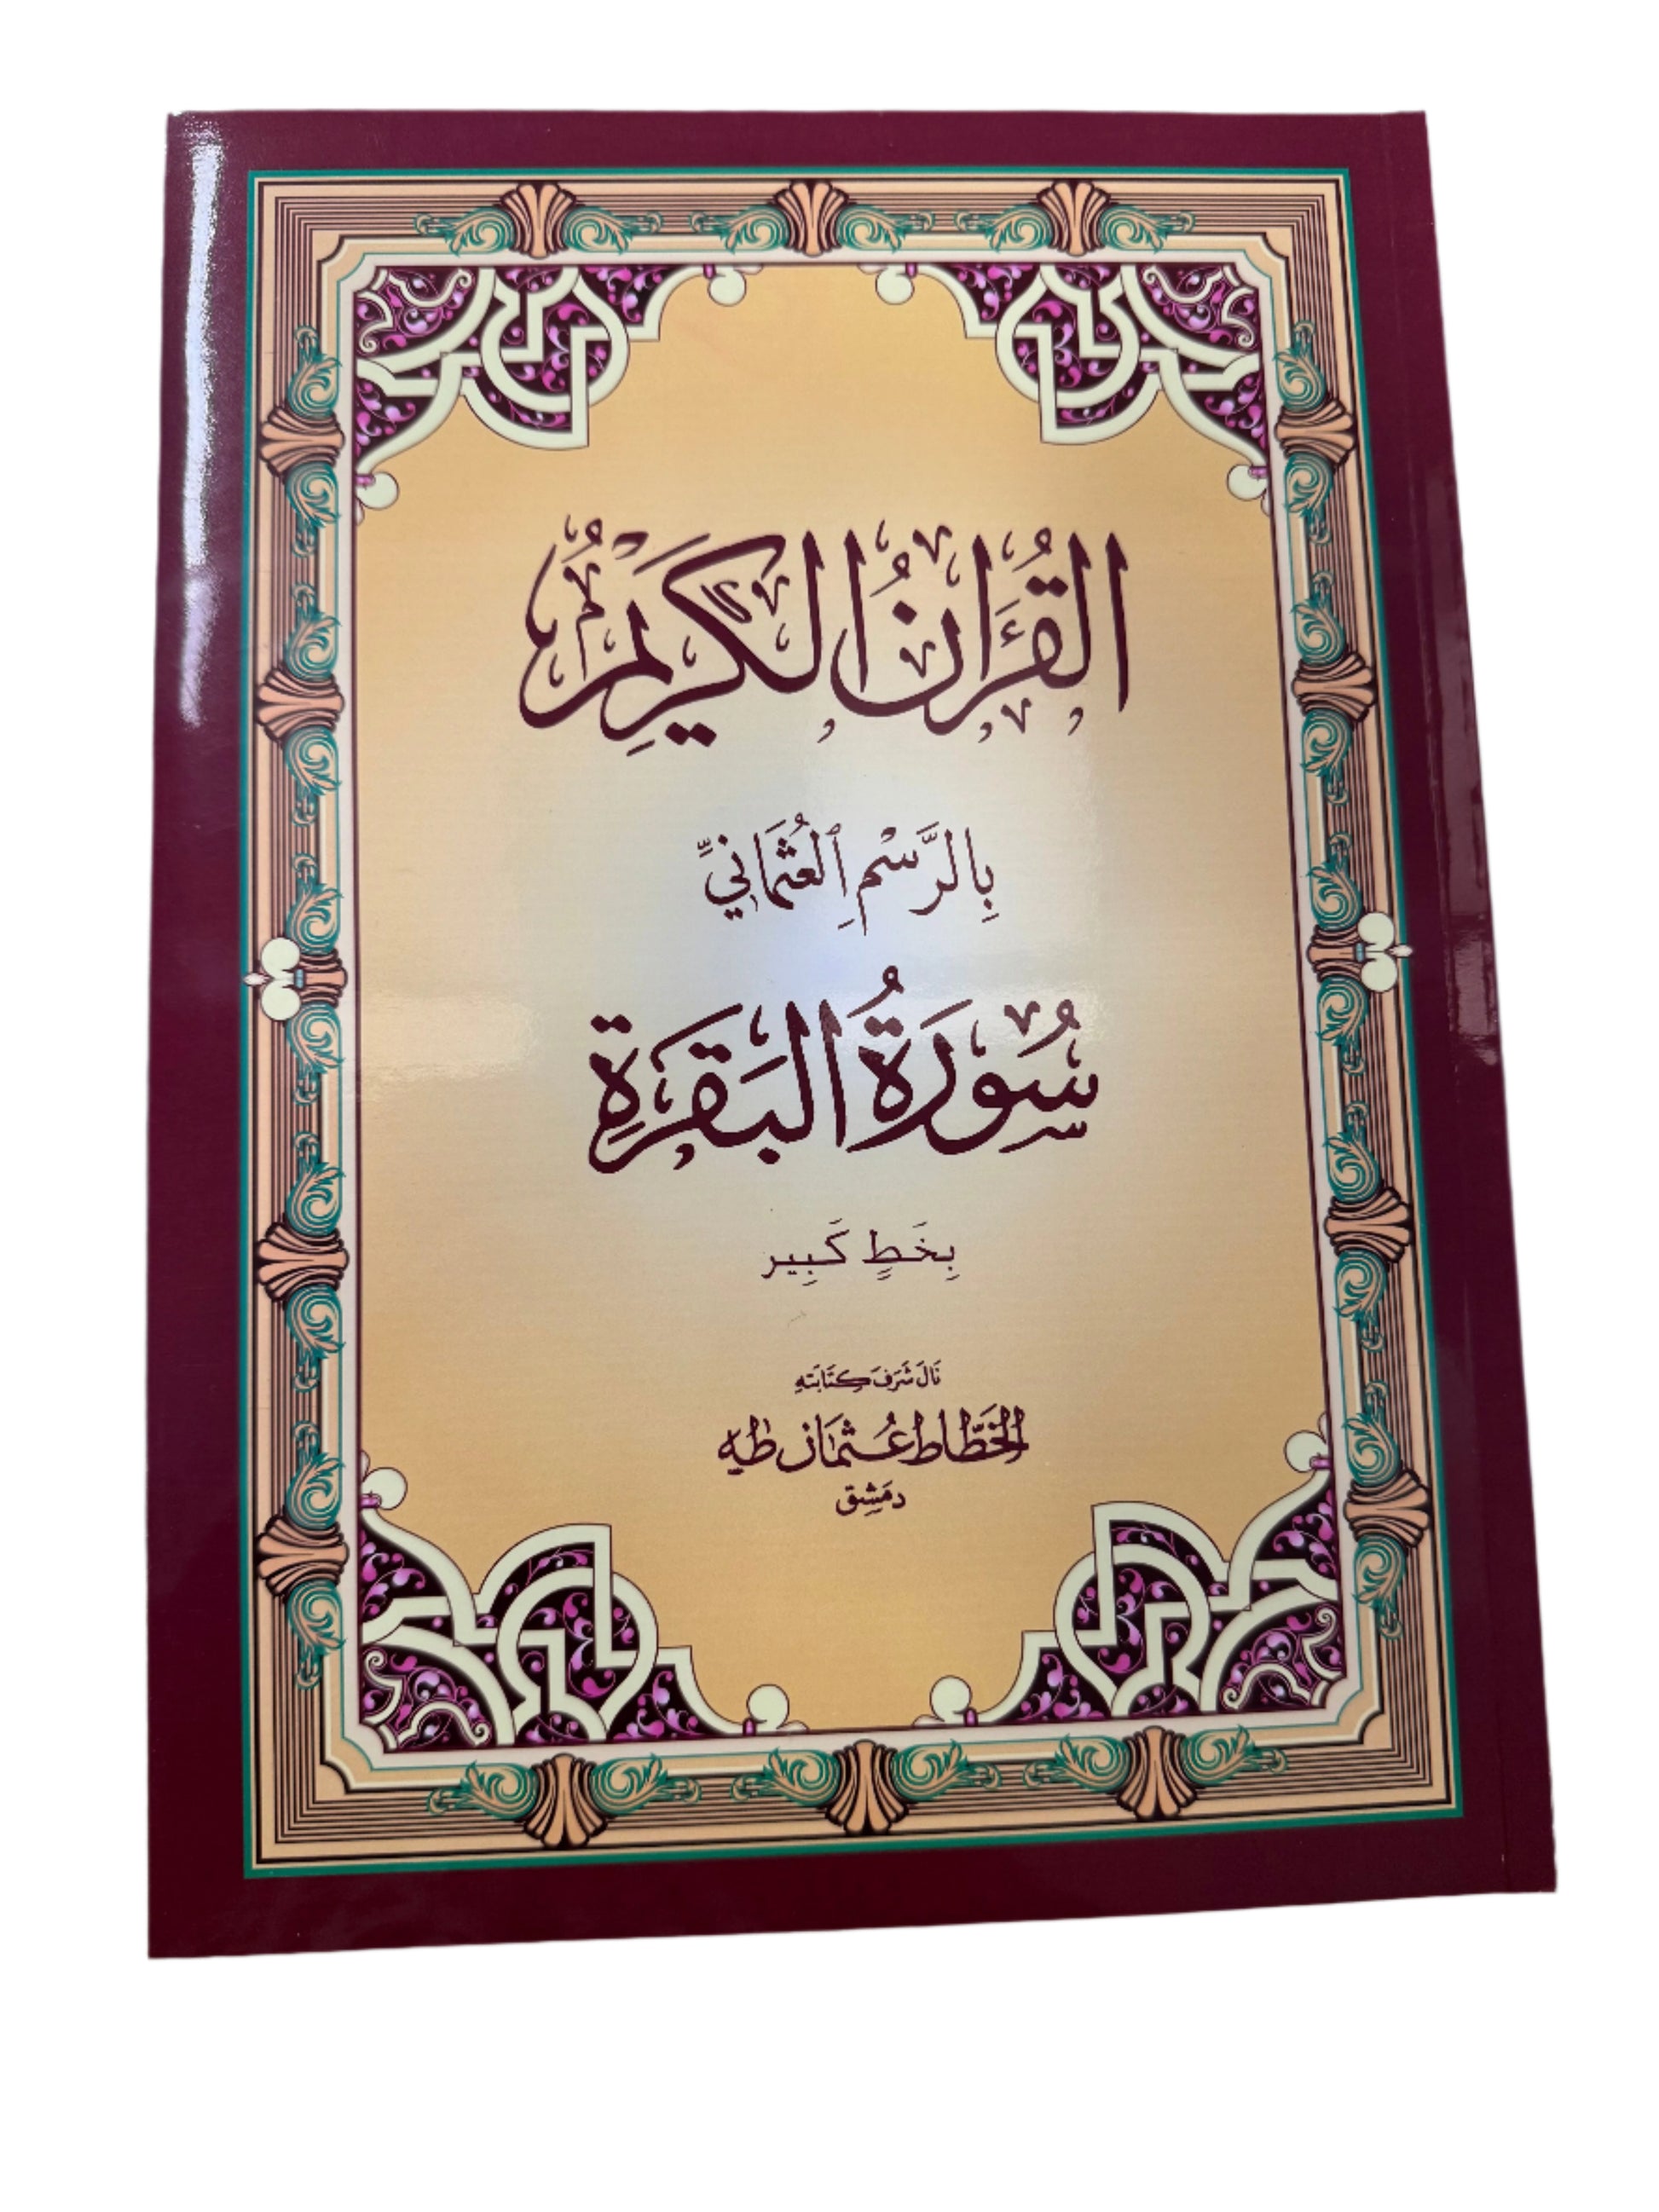 القُرْءَانُ الكَرِيْمُ
بِالرَّسْمِ ٱلعُثْمَانِيِّ
سُورَةُ البَقَرَةِ
بِخَطٍ كَبِير
نَالَ شَرَفَ كِتَابَتَهِ
الخَطَّاط عُثْمَان طٰه
دمَشِق